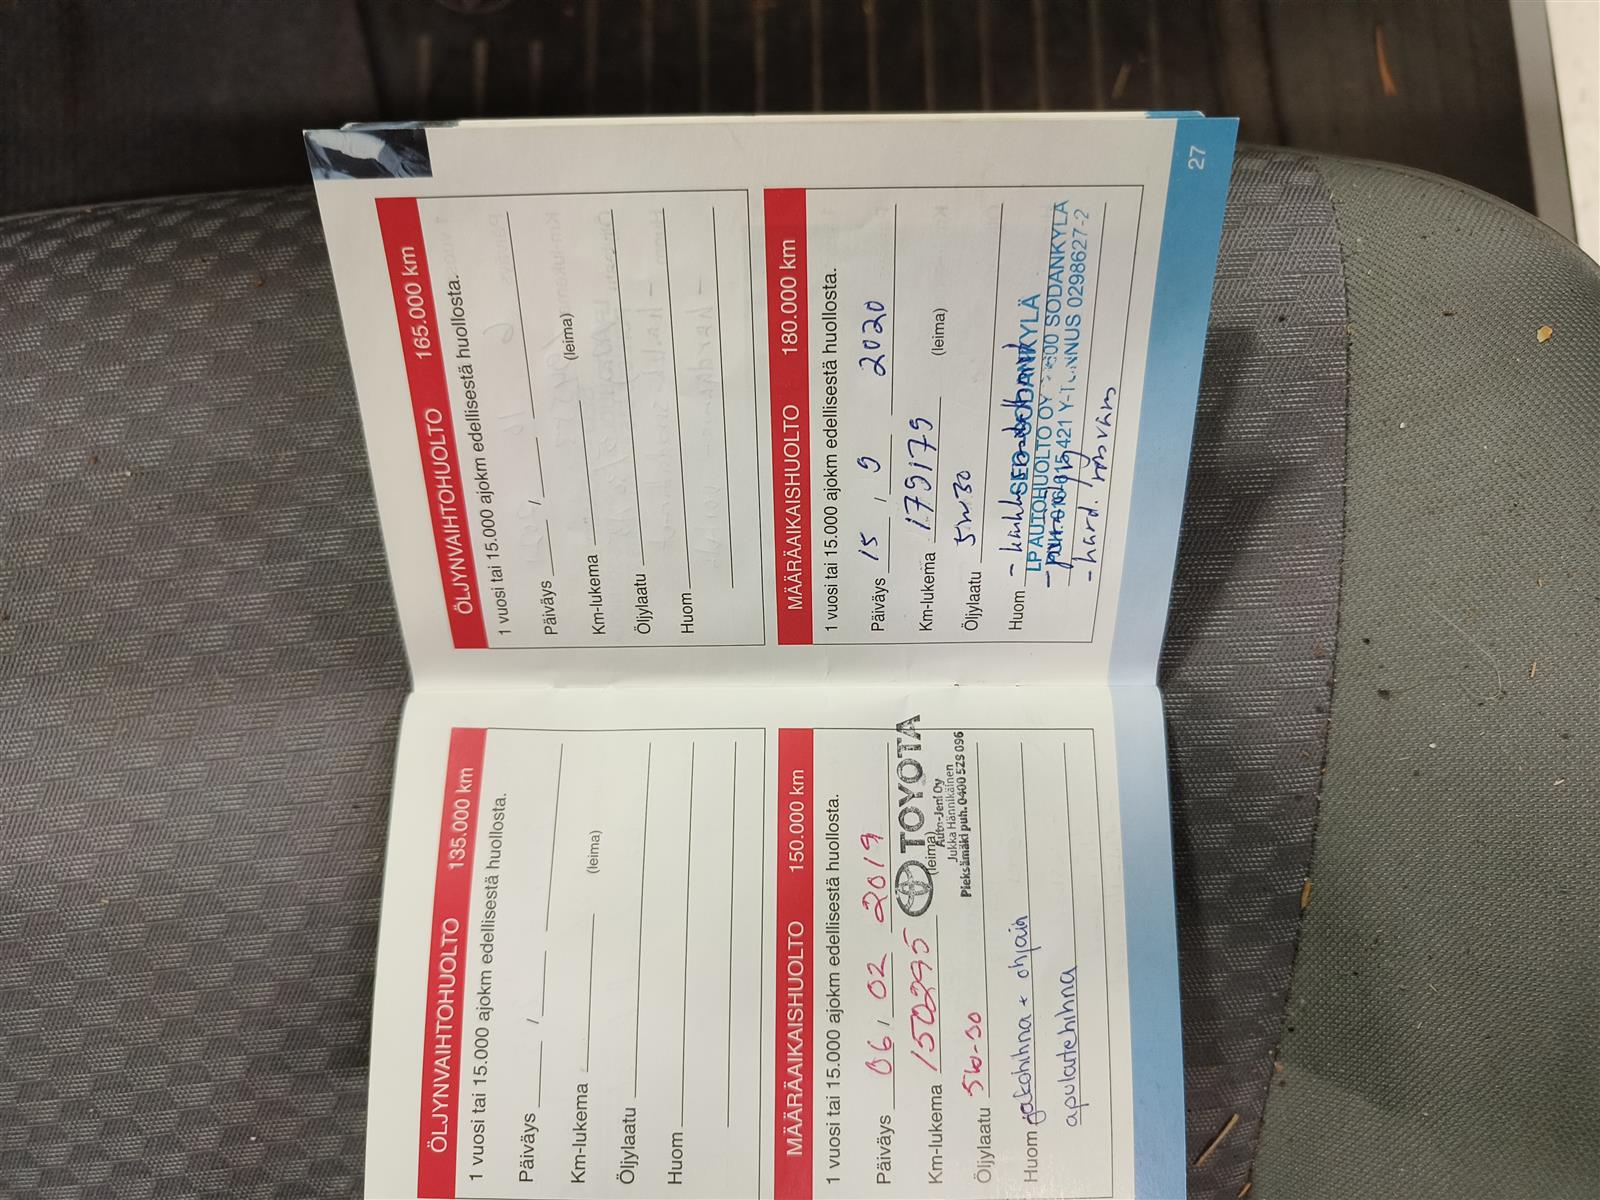 ÖLJYNVAIHTOHUOLTO 135.000 km
1 vuosi tai 15.000 ajokm edellisestä huollosta.
Päiväys / 
Km-lukema (leima)
Öljylaatu
Huom
MÄÄRÄAIKAISHUOLTO 150.000 km
1 vuosi tai 15.000 ajokm edellisestä huollosta.
Päiväys 06 / 02 2019
Km-lukema 150295 (leima)
TOYOTA
Auto-Jeni Oy
Jukka Hännikäinen
Pieksämäki puh. 0400 529 096
Öljylaatu 5W-30
Huom jakohihna + ohjain
apulaitehihna
ÖLJYNVAIHTOHUOLTO 165.000 km
1 vuosi tai 15.000 ajokm edellisestä huollosta.
Päiväys /
Km-lukema (leima)
Öljylaatu
Huom
MÄÄRÄAIKAISHUOLTO 180.000 km
1 vuosi tai 15.000 ajokm edellisestä huollosta.
Päiväys 15 / 9 2020
Km-lukema 179179 (leima)
Öljylaatu 5W30
Huom
SODANKYLÄ
LP AUTOHUOLTO OY SODANKYLÄ
421 Y-TUNNUS 0298627-2
- kard.
27